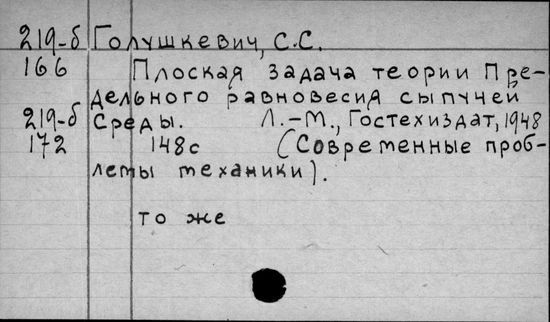 219-б Голушкевич, С.С.
166 Плоская задача теории пре-
дельного равновесия сыпучей
219-б среды. Л.-М., Гостехиздат, 1948
172 148с (Современные проб-
лемы механики).
то же